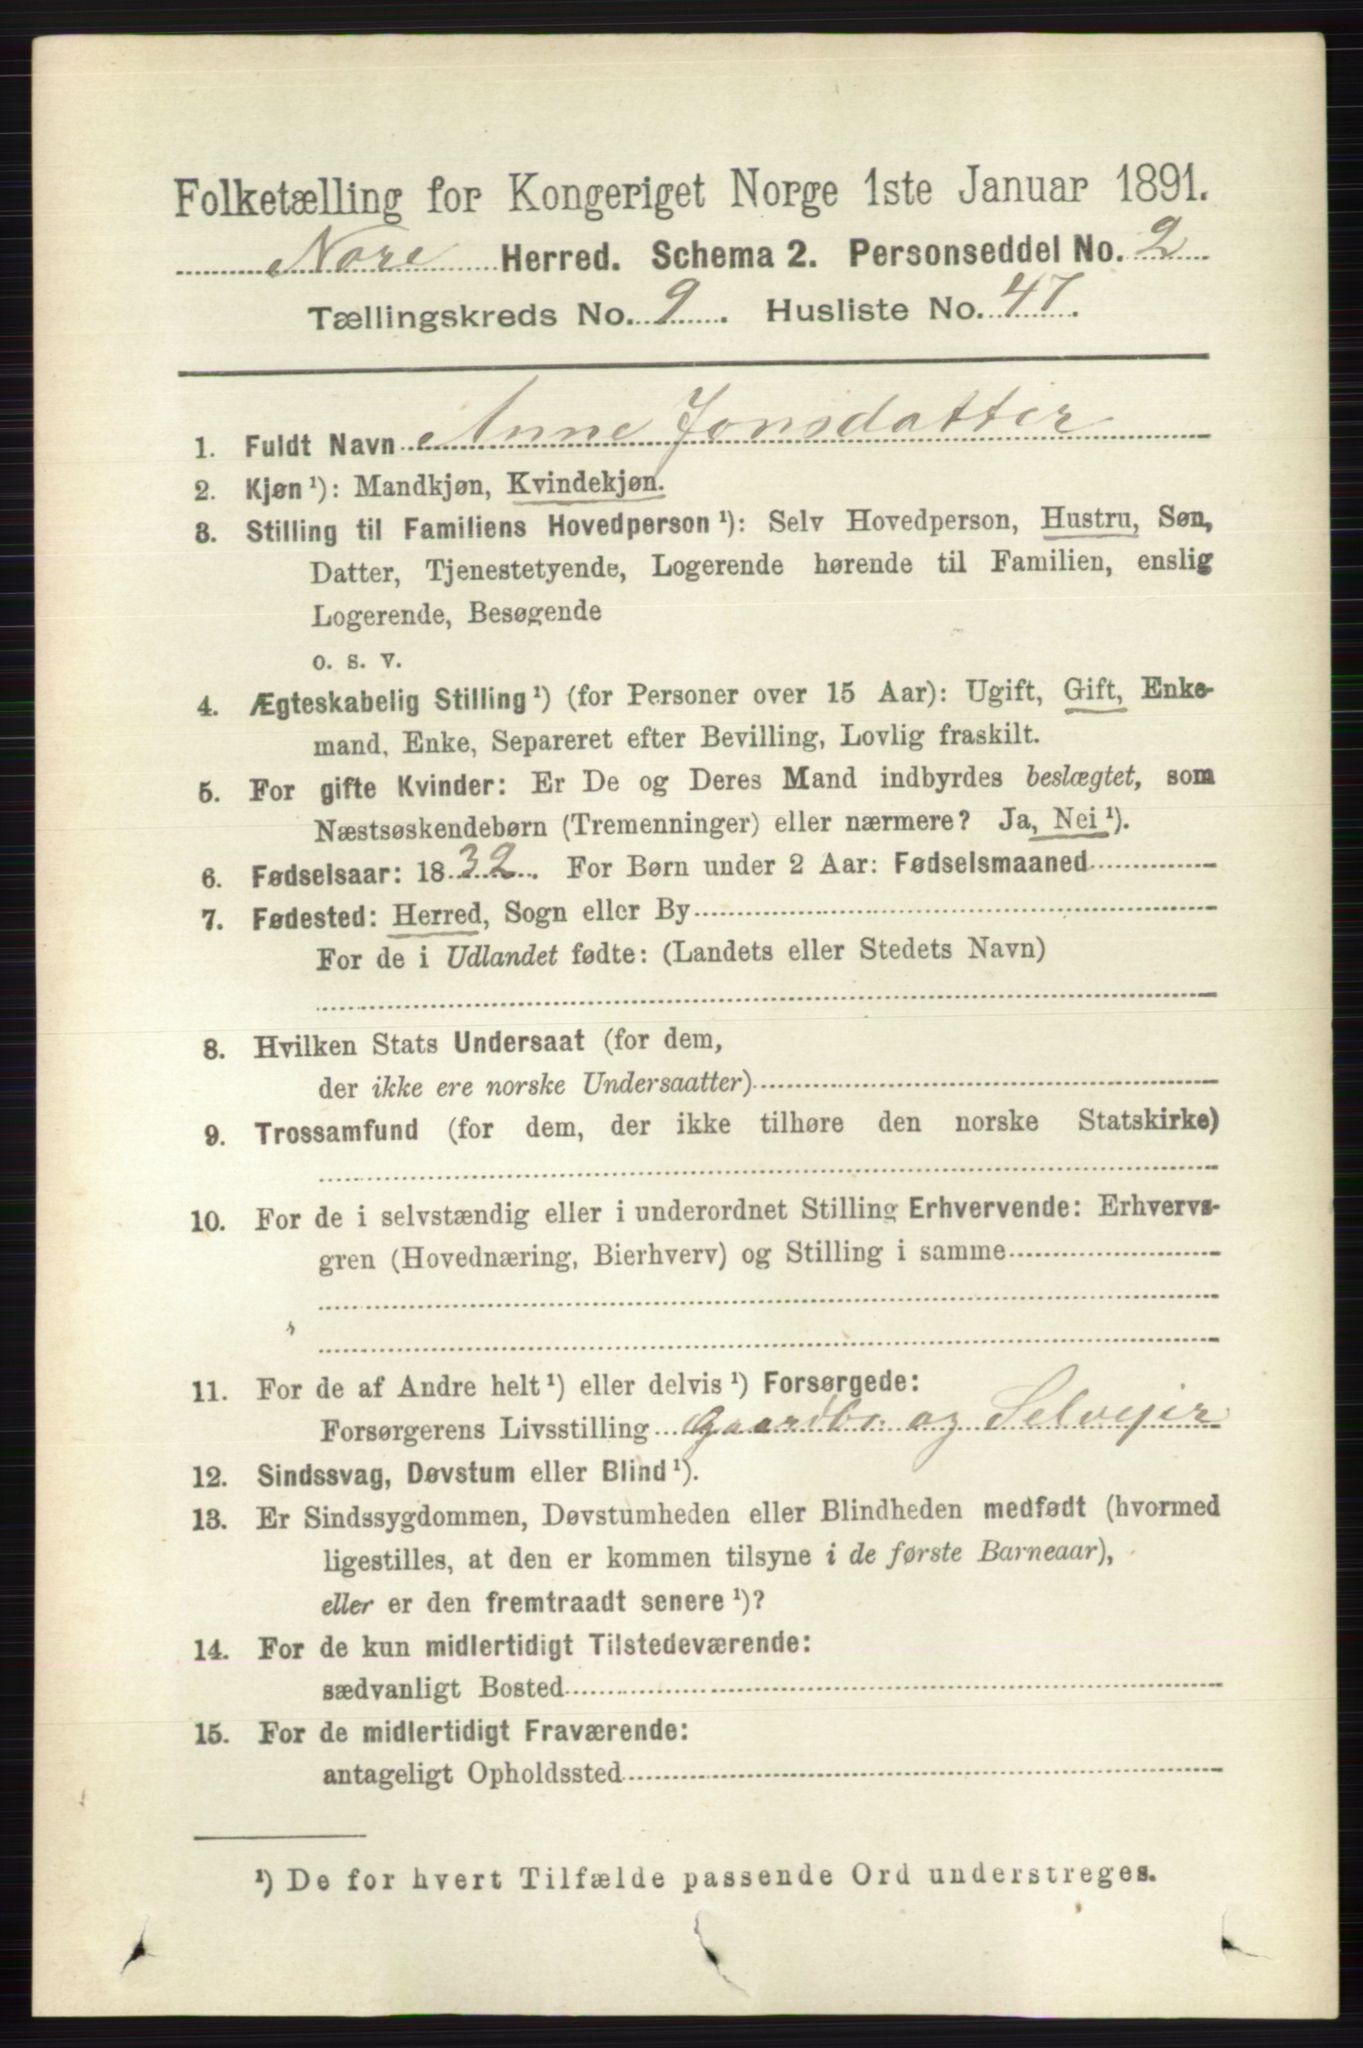 Folketælling for Kongeriget Norge 1ste Januar 1891.
Nore Herred. Schema 2. Personseddel No. 2
Tællingskreds No. 9. Husliste No. 47.
1. Fuldt Navn Anne Jonsdatter
2. Kjøn¹): Mandkjøn, Kvindekjøn.
3. Stilling til Familiens Hovedperson¹): Selv Hovedperson, Hustru, Søn,
Datter, Tjenestetyende, Logerende hørende til Familien, enslig
Logerende, Besøgende
o. s. v.
4. Ægteskabelig Stilling¹) (for Personer over 15 Aar): Ugift, Gift, Enke-
mand, Enke, Separeret efter Bevilling, Lovlig fraskilt.
5. For gifte Kvinder: Er De og Deres Mand indbyrdes beslægtet, som
Næstsøskendebørn (Tremenninger) eller nærmere? Ja, Nei¹).
6. Fødselsaar: 1832. For Børn under 2 Aar: Fødselsmaaned
7. Fødested: Herred, Sogn eller By
For de i Udlandet fødte: (Landets eller Stedets Navn)
8. Hvilken Stats Undersaat (for dem,
der ikke ere norske Undersaatter)
9. Trossamfund (for dem, der ikke tilhøre den norske Statskirke)
10. For de i selvstændig eller i underordnet Stilling Erhvervende: Erhvervs-
gren (Hovednæring, Bierhverv) og Stilling i samme
11. For de af Andre helt¹) eller delvis¹) Forsørgede:
Forsørgerens Livsstilling Gaardbr. og Selvejer
12. Sindssvag, Døvstum eller Blind¹).
13. Er Sindssygdommen, Døvstumheden eller Blindheden medfødt (hvormed
ligestilles, at den er kommen tilsyne i de første Barneaar),
eller er den fremtraadt senere¹)?
14. For de kun midlertidigt Tilstedeværende:
sædvanligt Bosted
15. For de midlertidigt Fraværende:
antageligt Opholdssted
¹) De for hvert Tilfælde passende Ord understreges.